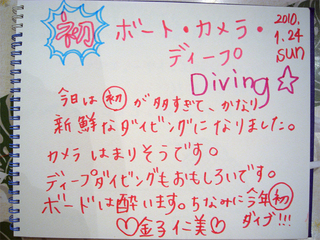 初 ボート・カメラ・
ディープ
Diving☆
2010.
1.24
sun
今日は初が多すぎて、かなり
新鮮なダイビングになりました。
カメラはまりそうです。
ディープダイビングもおもしろいです。
ボードは酔います。ちなみに今年初
ダイブ!!!
♡金子仁美♡